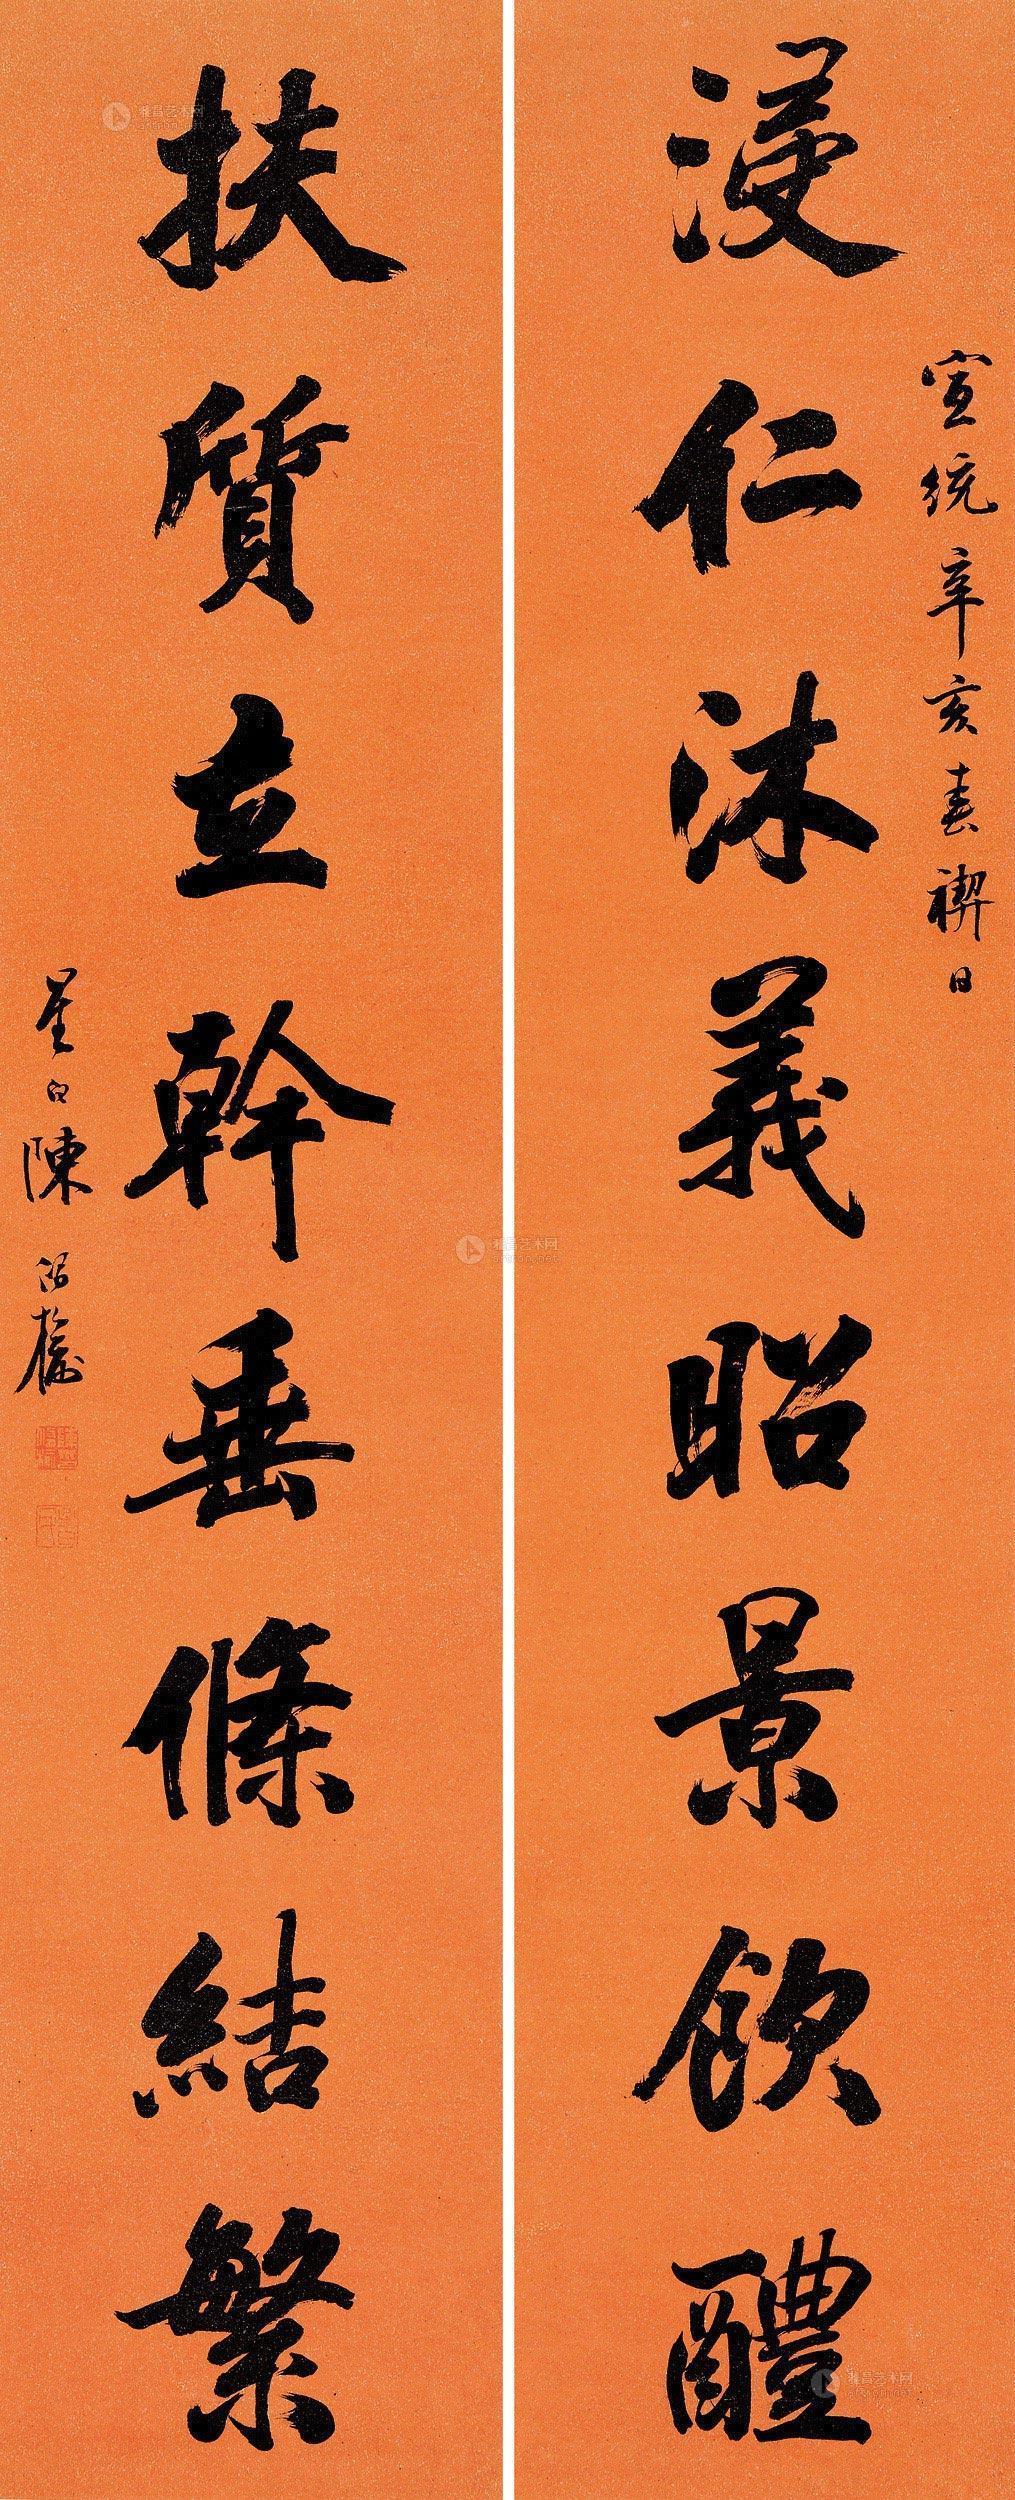 宣統辛亥春禊日
浸仁沐義昭景飲醴
扶質立幹垂條結繁
星白陳
雅昌艺术网
雅昌艺术网
雅昌艺术网